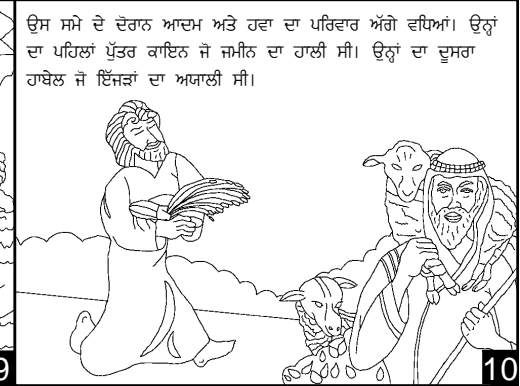 ਉਸ ਸਮੇ ਦੇ ਦੋਰਾਨ ਆਦਮ ਅਤੇ ਹਵਾ ਦਾ ਪਰਿਵਾਰ ਅੱਗੇ ਵਧਿਆਂ। ਉਨ੍ਹਾਂ
ਦਾ ਪਹਿਲਾਂ ਪੁੱਤਰ ਕਾਇਨ ਜੋ ਜਮੀਨ ਦਾ ਹਾਲੀ ਸੀ। ਉਨ੍ਹਾਂ ਦਾ ਦੂਸਰਾ
ਹਾਬੇਲ ਜੋ ਇੱਜੜਾਂ ਦਾ ਅਯਾਲੀ ਸੀ।
9
10